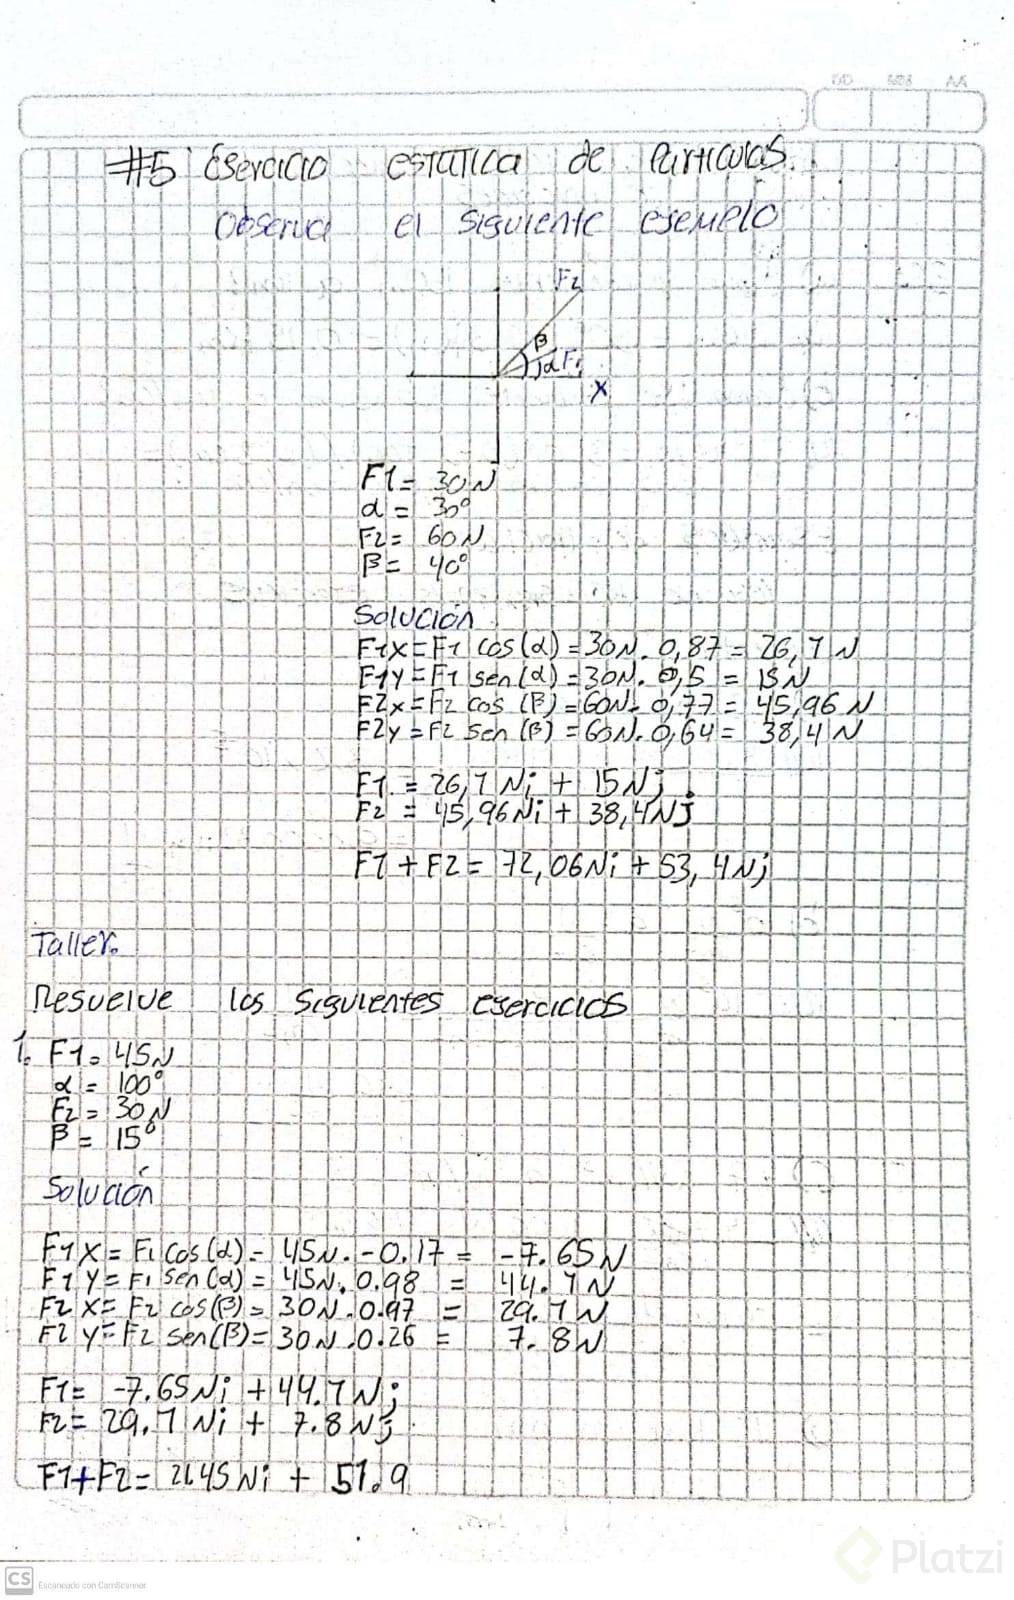 DD MES AA
#5 Esercicio estatica de Particulas.
Observa el siguiente esemplo
F2
β
α F1
X
F1= 30N
α = 30°
F2= 60N
β= 40°
Solución
F1X=F1 cos(α)=30N. 0,87= 26,1 N
F1Y=F1 sen(α)=30N. 0,5 = 15N
F2x=F2 cos (β)=60N. 0,77= 45,96 N
F2y=F2 sen (β)=60N. 0,64= 38,4 N
F1. = 26,1 Ni + 15Nj
F2 = 45,96Ni + 38,4Nj
F1 + F2= 72,06Ni + 53,4Nj
Taller.
Resuelve los siguientes esercicios
1. F1= 45N
α = 100°
F2= 30N
β= 15°
Solución
F1X= F1 cos(α)= 45N. -0.17 = -7.65N
F1 Y= F1 sen(α)= 45N. 0.98 = 44.1N
F2 X= F2 cos(β)= 30N. 0.97 = 29.1N
F2 Y= F2 sen(β)= 30N .0.26 = 7.8N
F1= -7.65Ni + 44.1Nj
F2= 29.1 Ni + 7.8Nj
F1+F2= 21.45Ni + 51.9
Platzi
CS Escaneado con CamScanner